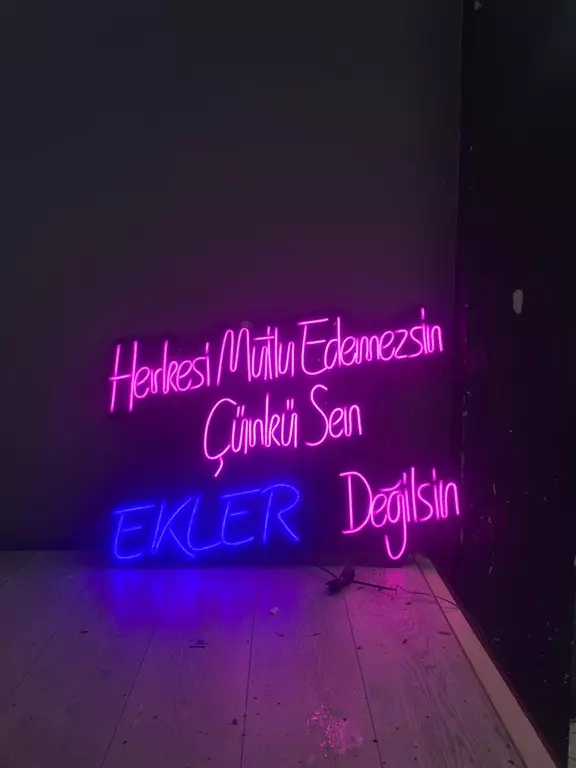 Herkesi Mutlu Edemezsin
Çünkü Sen
EKLER Değilsin